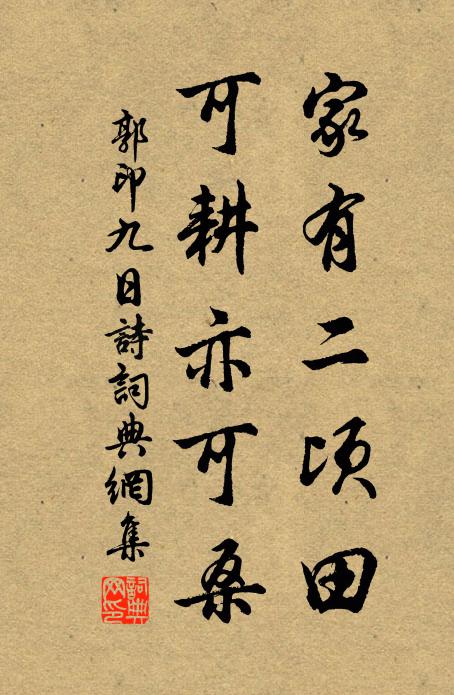 家有二頃田
可耕亦可桑
郭印九日詩詞典網集
詞典網印